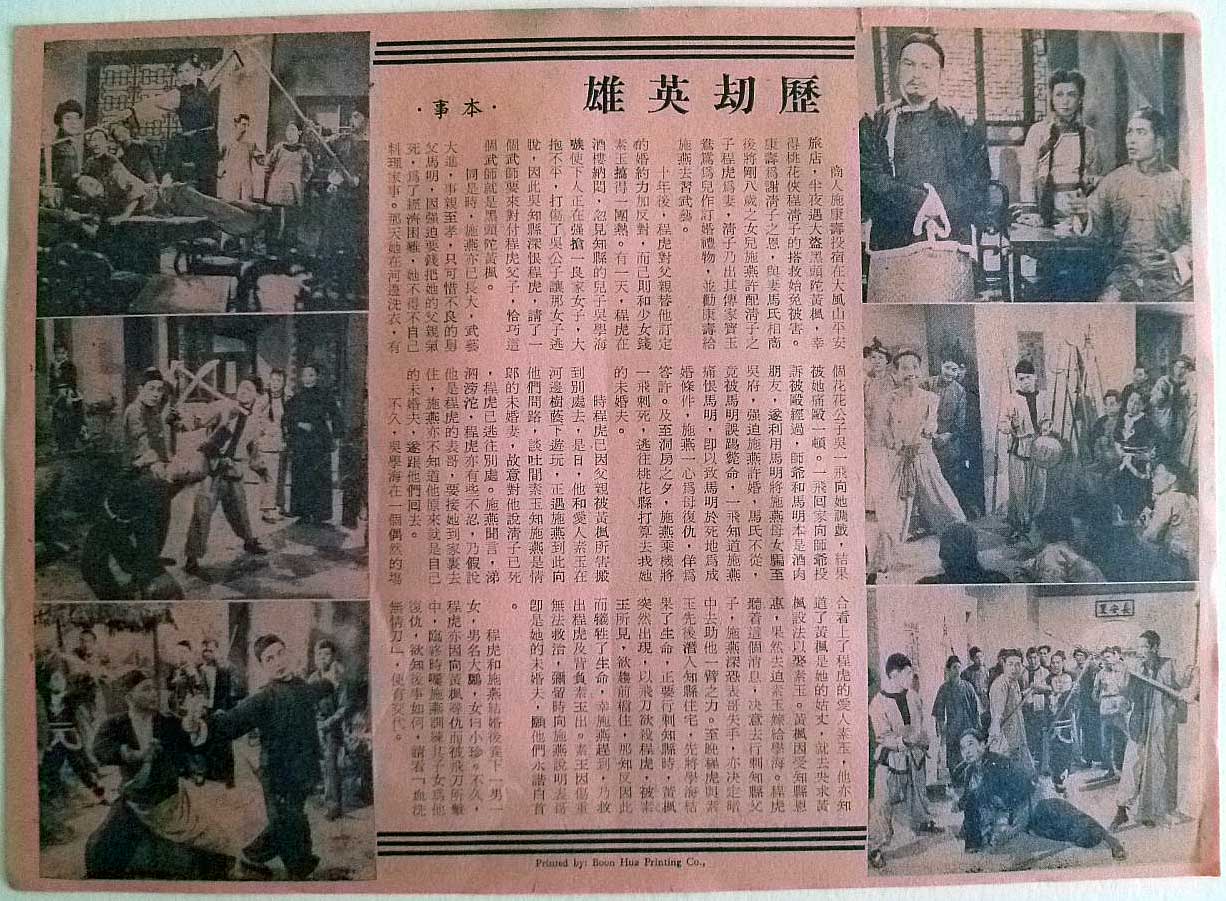 歷劫英雄
·本事·
商人施康壽投宿在大風山平安
旅店,半夜遇大盜黑頭陀黃楓,幸
得桃花俠程淸子的搭救始免被害。
康壽爲謝淸子之恩,與妻馬氏相商
後將剛八歲之女兒施燕許配淸子之
子程虎爲妻,淸子乃出其傳家寶玉
鴛鴦爲兒作訂婚禮物,並勸康壽給
施燕去習武藝。
十年後,程虎對父親替他訂定
的婚約力加反對,而己則和少女錢
素玉搞得一團熱。有一天,程虎在
酒樓納悶,忽見知縣的兒子吳學海
嗾使下人正在强搶一良家女子,大
抱不平,打傷了吳公子讓那女子逃
脫,因此吳知縣深恨程虎,請了一
個武師要來對付程虎父子,恰巧這
個武師就是黑頭陀黃楓。
同是時,施燕亦已長大,武藝
大進,事親至孝,只可惜不良的舅
父馬明,因强迫要錢把她的父親氣
死,爲了經濟困難,她不得不自己
料理家事。那天她在河邊洗衣,有
個花花公子吳一飛向她調戲,結果
被她痛毆一頓。一飛回家向師爺投
訴被毆經過,師爺和馬明本是酒肉
朋友,遂利用馬明將施燕母女騙至
吳府,强迫施燕許婚,馬氏不從,
竟被馬明誤踢斃命,一飛知道施燕
痛恨馬明,卽以致馬明於死地爲成
婚條件,施燕一心爲母復仇,佯爲
答許。及至洞房之夕,施燕乘機將
一飛刺死,逃往桃花縣打算去找她
的未婚夫。
時程虎已因父親被黃楓所害搬
到別處去,是日,他和愛人素玉在
河邊樹蔭下遊玩,正遇施燕到此向
他們問路,談吐間素玉知施燕是情
郎的未婚妻,故意對他說淸子已死
,程虎已逃往別處。施燕聞言,涕
泗滂沱,程虎亦有些不忍,乃假說
他是程虎的表哥,要接她到家裏去
住,施燕亦不知道他原來就是自己
的未婚夫,遂跟他們回去。
不久,吳學海在一個偶然的塲
合看上了程虎的愛人素玉,他亦知
道了黃楓是她的姑丈,就去央求黃
楓設法以娶素玉。黃楓因受知縣恩
惠,果然去迫素玉嫁給學海。程虎
聽着這個消息,决意去行刺知縣父
子,施燕深恐表哥失手,亦决定暗
中去助他一臂之力。至晚程虎與素
玉先後潛入知縣住宅,先將學海結
果了生命,正要行刺知縣時,黃楓
突然出現,以飛刀欲殺程虎,被素
玉所見,欲趨前擋住,那知反因此
而犧牲了生命,幸施燕趕到,乃救
出程虎及背負素玉出。素玉因傷重
無法救治,彌留時向施燕說明表哥
卽是她的未婚夫,願他們永諧白首
。
程虎和施燕結婚後養下一男一
女,男名大鵬,女曰小珍。不久,
程虎亦因向黃楓尋仇而被飛刀所擊
中,臨終時囑施燕訓練其子女爲他
復仇,欲知後事如何,請看「血洗
無情刀」,便有交代。
長安里
Printed by: Boon Hua Printing Co.,